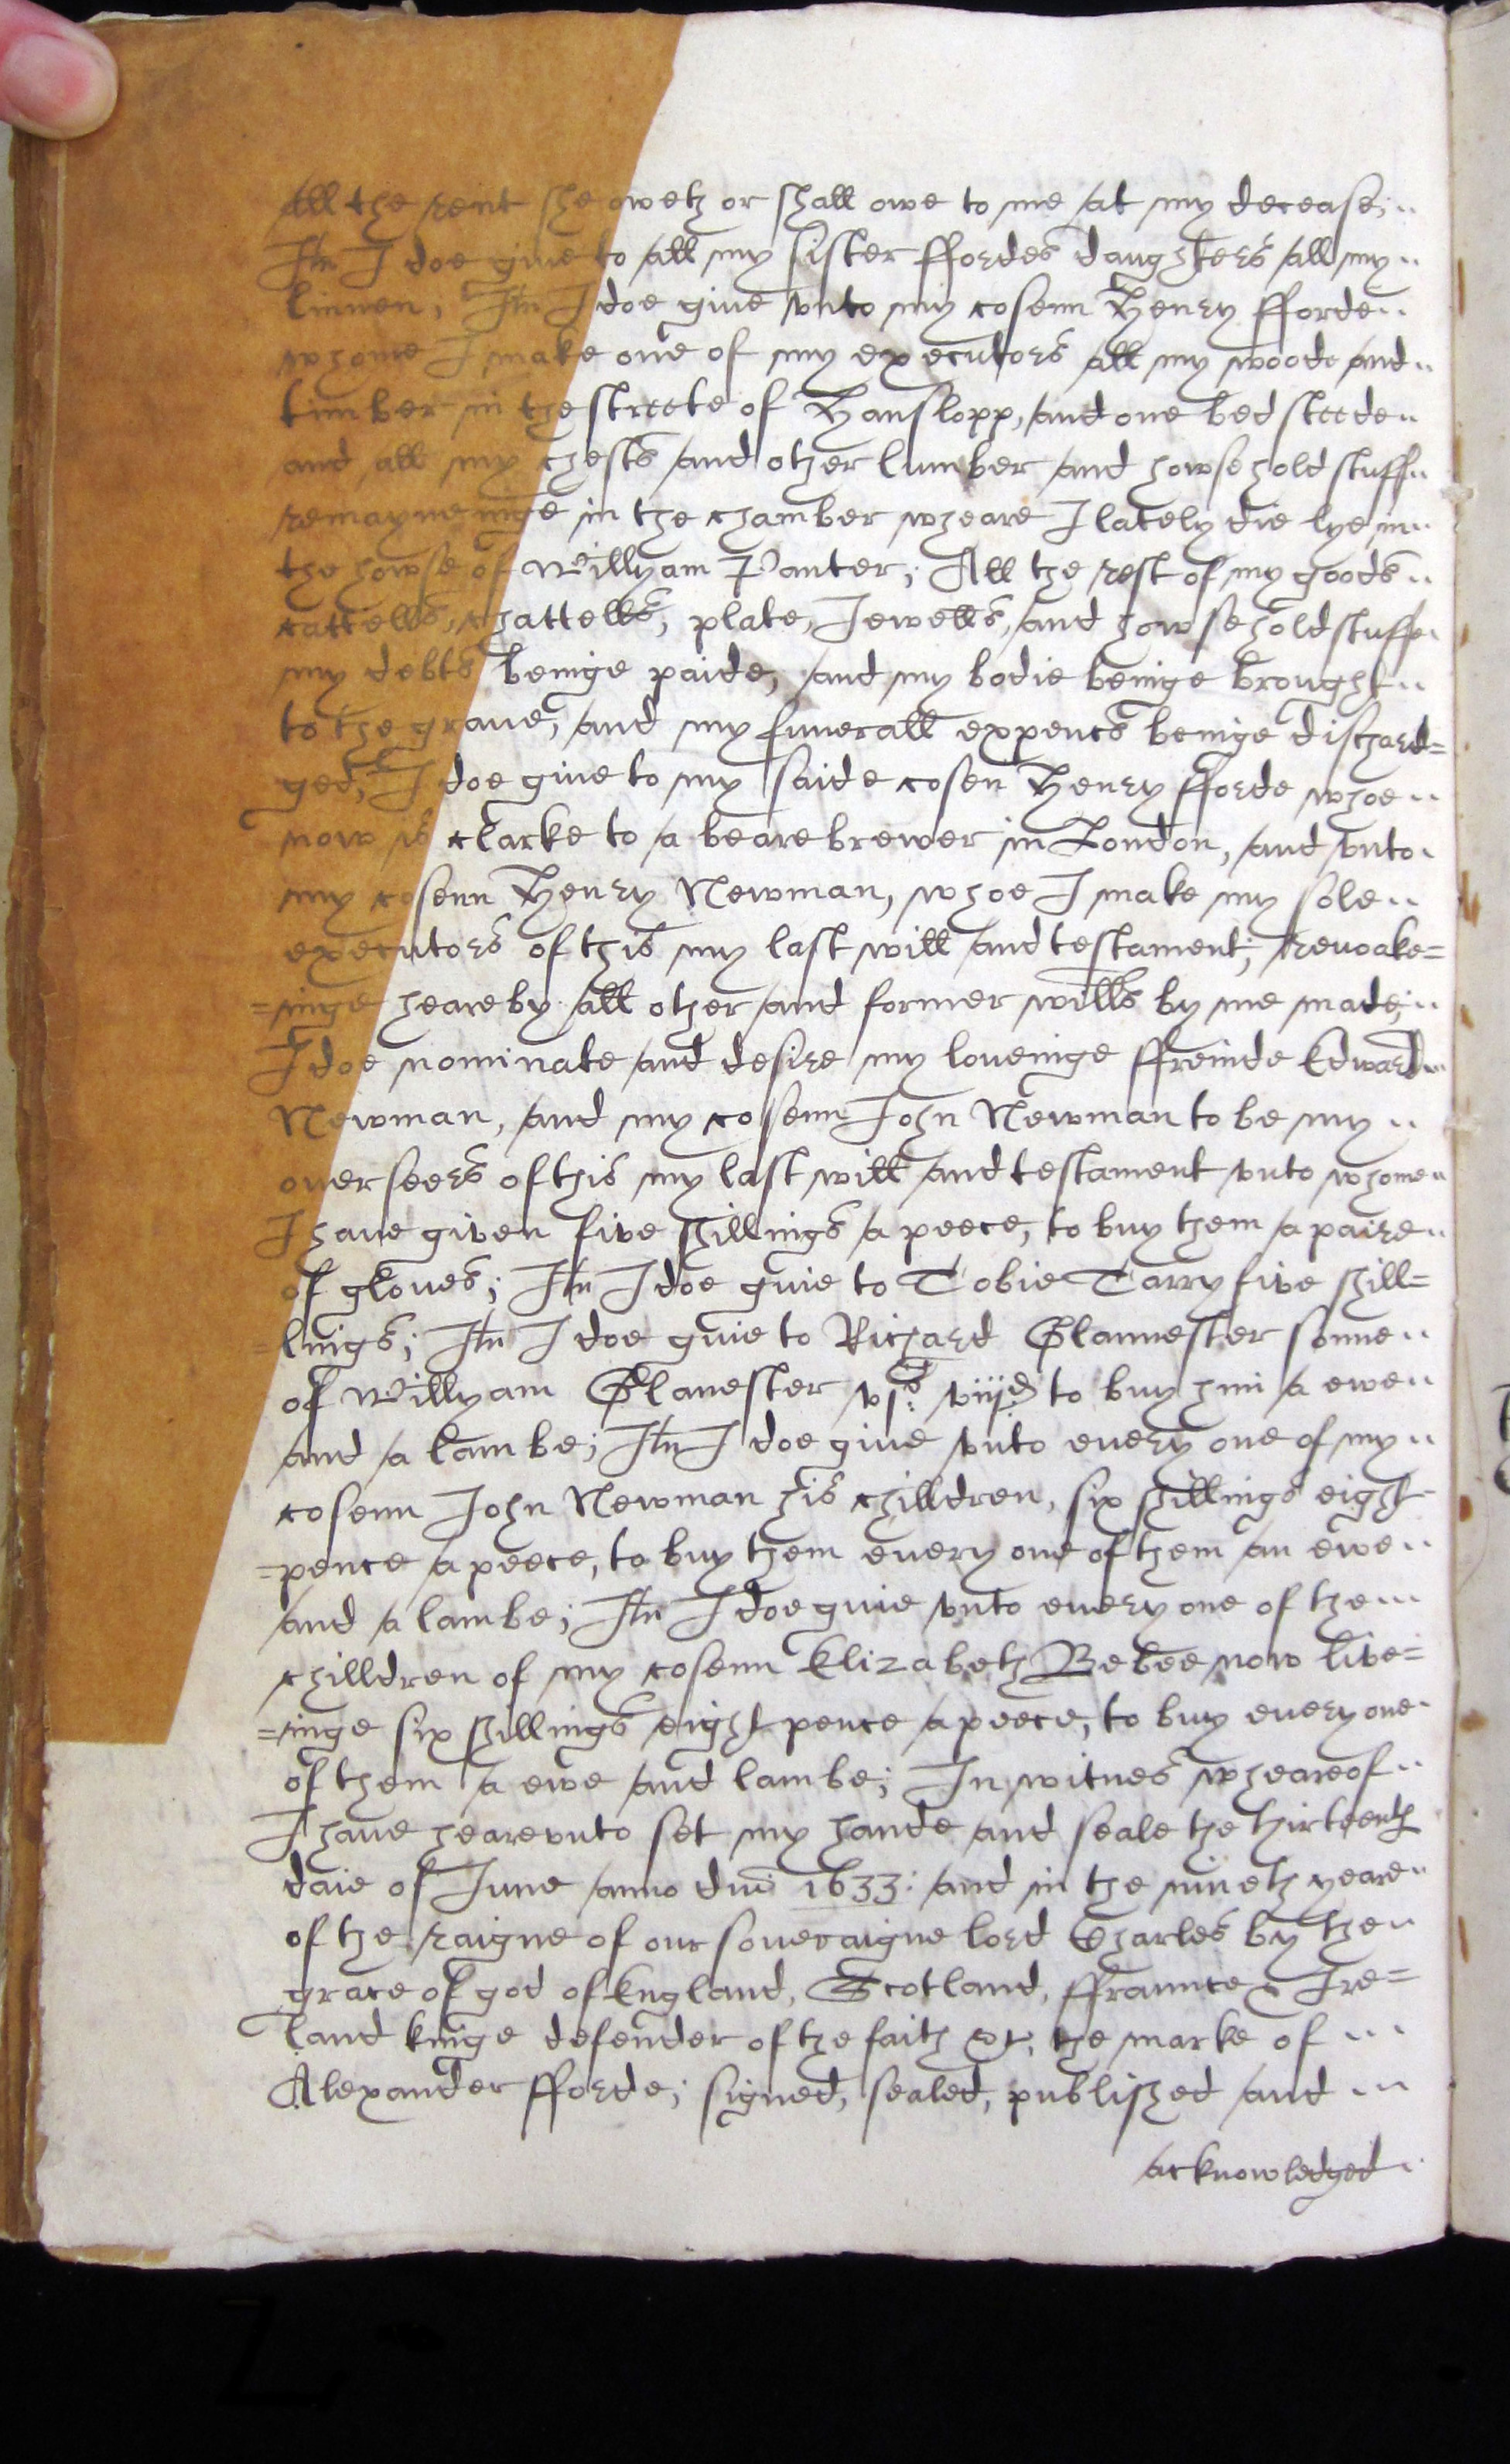 All the rent she oweth or shall owe to me at my decease;
Itm I doe giue to all my sister ffordes daughters all my
linnen, Itm I doe giue vnto my cosenn Henry fforde
whome I make one of my executors all my woode and
timber in the streete of Hanslopp, and one bedsteede
and all my chests and other lumber and howsehold stuff
remayneinge in the chamber wheare I lately die lye in
the howse of Willyam Panter; All the rest of my goods
cattells, chattells, plate, Iewells, and howsehold stuffe
my debts beinge paide, and my bodie beinge brought
to the graue, and my funerall expences beinge dischard=
ged, I doe giue to my saide cosen Henry fforde whoe
now is clarke to a beare brewer in London, and vnto
my cosenn Henry Newman, whoe I make my sole
executors of this my last will and testament; reuoake=
=inge heareby all other and former wills by me made;
I doe nominate and desire my loueinge ffreinde Edward
Newman, and my cosenn Iohn Newman to be my
ouerseers of this my last will and testament vnto whome
I haue given five shillings a peece, to buy them a paire
of gloues; Itm I doe giue to Tobie Tarry five shill=
=lings; Itm I doe giue to Richard Glannester sonne
of Willyam Glanester vjs: viijd to buy him a ewe
and a lambe; Itm I doe giue vnto euery one of my
cosenn Iohn Newman his chilldren, six shillings eight
=pence a peece, to buy them euery one of them an ewe
and a lambe; Itm I doe giue vnto euery one of the
chilldren of my cosenn Elizabeth Bebee now live=
=inge six shillings eight pence a peece, to buy euery one
of them a ewe and lambe; In witnes wheareof
I haue hearevnto set my hande and seale the thirteenth
daie of Iune anno dni 1633: and in the nineth yeare
of the raigne of our soueraigne lord Charles by the
grace of god of England, Scotland, ffraunce & Ire=
land kinge defender of the faith &c, the marke of
Alexander fforde; signed, sealed, published and
acknowledged